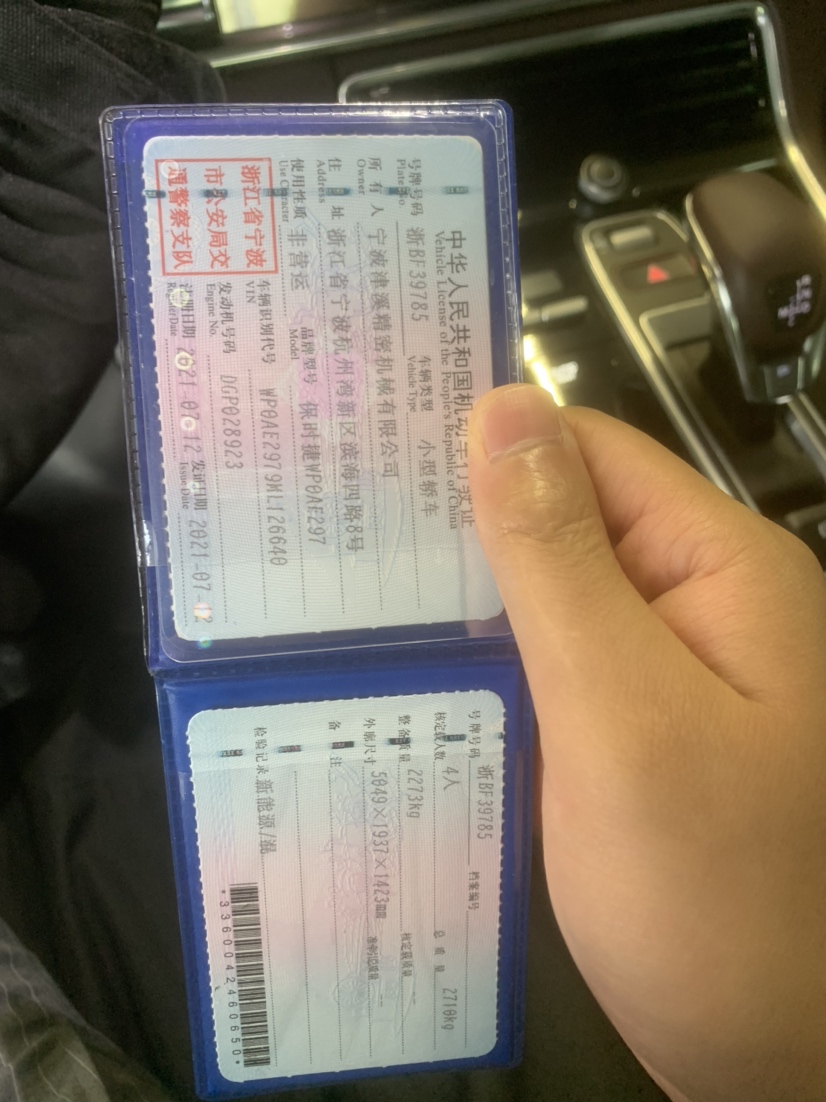 中华人民共和国机动车行驶证
Vehicle License of the People's Republic of China
号牌号码 浙BF39785 车辆类型 小型轿车
Plate No. Vehicle Type
所有人 宁波津溪精密机械有限公司
Owner
住址 浙江省宁波杭州湾新区滨海四路8号
Address
使用性质 非营运 品牌型号 保时捷WP0AE297
Use Character Model
浙江省宁波
市公安局交
通警察支队
车辆识别代号 WP0AE2979ML126640
VIN
发动机号码 DGP028923
Engine No.
注册日期 2021-07-12 发证日期 2021-07-12
Register Date Issue Date
号牌号码 浙BF39785 档案编号
核定载人数 4人 总质量 2710kg
整备质量 2273kg 核定载质量 --
外廓尺寸 5049×1937×1423mm 准牵引总质量 --
备注
检验记录 新能源/混
*3360042460650*